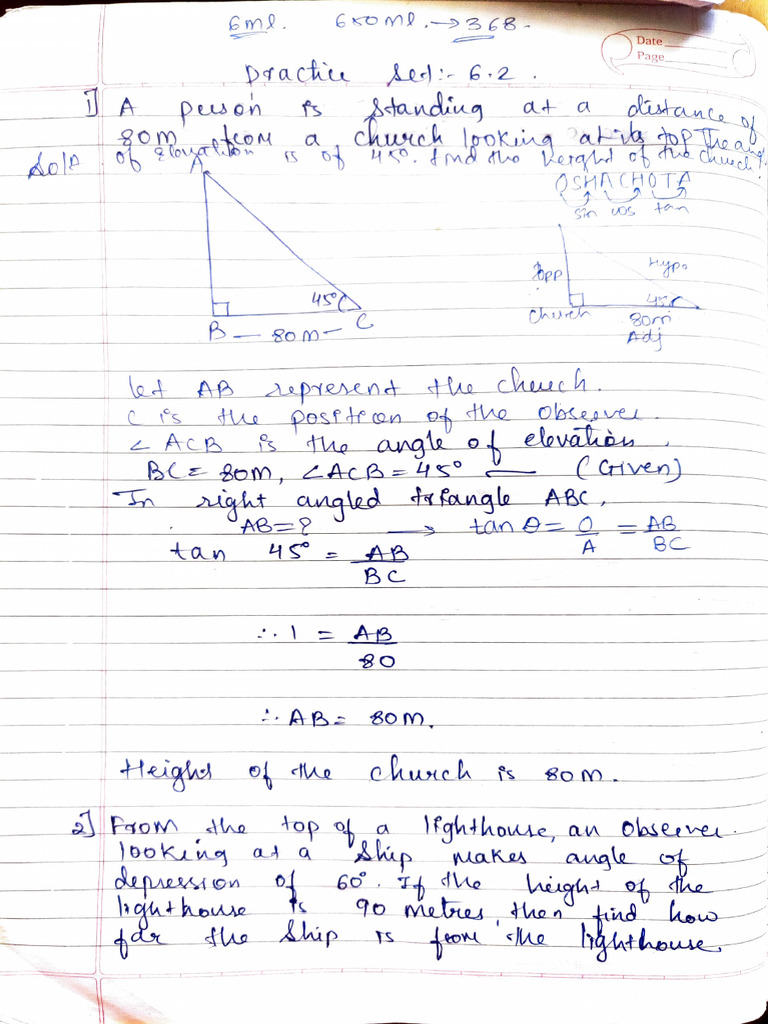 6ml. 6x0 ml. → 368.
Date
Page
Practice Set:- 6.2.
1] A person is standing at a distance of
80m from a church looking at its top The ang
of elevation is of 45°. find the height of the church?
Soln
A
OSHACHOTA
sin cos tan
Opp
Hypo
45°
45°
B - 80m - C
Church
80m
Adj
let AB represent the church.
C is the position of the observer.
∠ ACB is the angle of elevation.
BC = 80m, ∠ACB = 45° — (Given)
In right angled triangle ABC,
AB = ? → tan θ = O/A = AB/BC
tan 45° = AB/BC
∴ 1 = AB/80
∴ AB = 80m.
Height of the church is 80m.
2] From the top of a lighthouse, an observer
looking at a ship makes angle of
depression of 60°. If the height of the
lighthouse is 90 metres, then find how
far the ship is from the lighthouse.